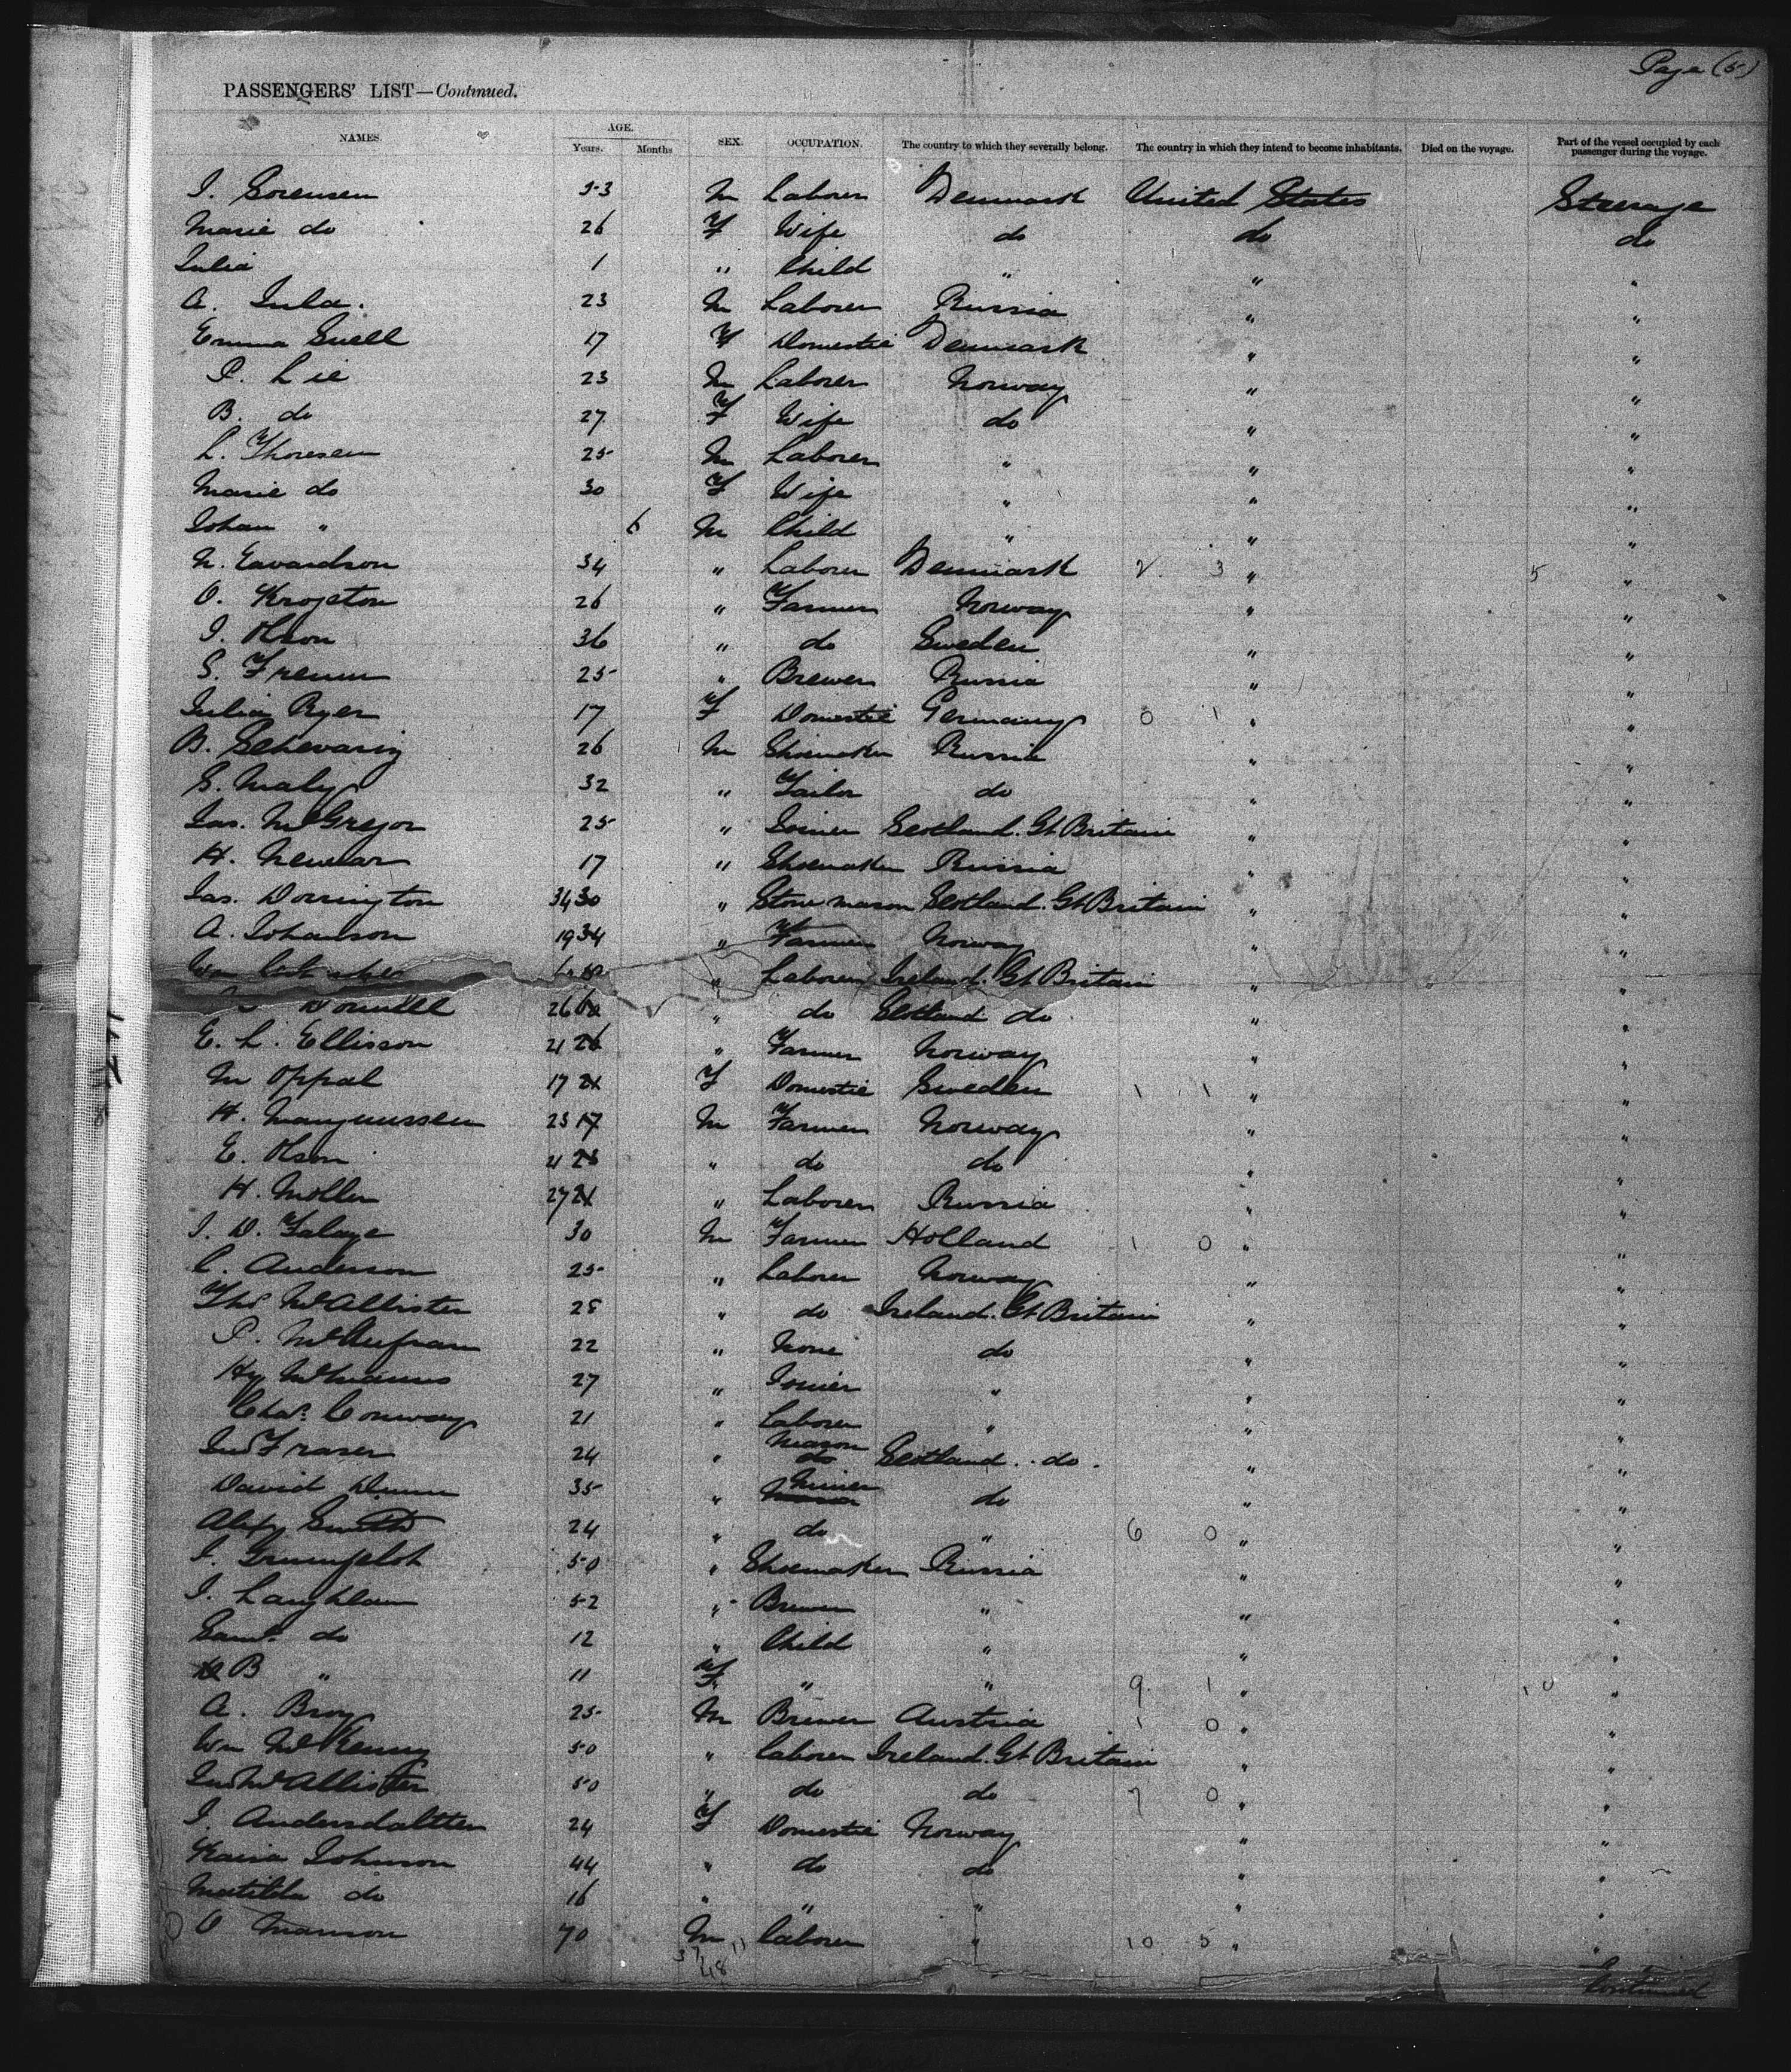 Page (5)
PASSENGERS' LIST—Continued.
NAMES. AGE. Years. Months SEX. OCCUPATION. The country to which they severally belong. The country in which they intend to become inhabitants. Died on the voyage. Part of the vessel occupied by each passenger during the voyage.
I. Sorensen 33 M Laborer Denmark United States Steerage
Marie do 26 F Wife do do do
Julia 1 " Child " " "
A. Jula. 23 M Laborer Russia " "
Emma Snell 17 F Domestic Denmark " "
P. Lie 23 M Laborer Norway " "
B. do 27 F Wife do " "
L. Thoresen 25 M Laborer " " "
Marie do 30 F Wife " " "
Johan " 6 M Child " " "
N. Edvardson 34 " Laborer Denmark 2 3 " 5 "
O. 26 " Farmer Norway " "
I. Olson 36 " do Sweden " "
S. 25 " Brewer Russia " "
Julia Ryer 17 F Domestic Germany 0 1 " "
B. 26 M Shoemaker Russia " "
S. Maly 32 " Tailor do " "
Jas. McGregor 25 " Joiner Scotland. Gt Britain " "
H. Newman 17 " Shoemaker Russia " "
Jas. Dorrington 34 30 " Stone mason Scotland. Gt Britain " "
A. Johanson 19 34 " Farmer Norway " "
Wm " Laborer Ireland. Gt Britain " "
26 " do Scotland do " "
E. L. Ellisson 21 26 " Farmer Norway " "
M Oppal 17 21 F Domestic Sweden 1 1 " "
H. Mangnussen 23 17 M Farmer Norway " "
E. Olson 21 23 " do do " "
H. Moller 27 21 " Laborer Russia " "
I. D. Falaye 30 M Farmer Holland 1 0 " "
C. Anderson 25 " Laborer Norway " "
Thos McAllister 28 " do Ireland. Gt Britain " "
P. 22 " None do " "
Hy McManus 27 " Joiner " " "
Chas. Conway 21 " Laborer " " "
Jno Fraser 24 " Mason do Scotland. do. " "
David Dunn 35 " Miner do " "
Alex Smith 24 " do " 6 0 " "
I. Grunfeldt 50 " Shoemaker Russia " "
I. Laughlan 52 " Brewer " " "
Saml. do 12 " Child " " "
B " 11 F " " 9 1 " 10 "
A. Broy 25 M Brewer Austria 1 0 " "
Wm McKenny 50 " Laborer Ireland. Gt Britain " "
Jno McAllister 50 " do do 7 0 " "
I. Andersdaltter 24 F Domestic Norway " "
Kaisa Johnson 44 " do do " "
Matilda do 16 " " " " "
O Manson 70 M Laborer " 10 5 " "
37 11
48
Continued